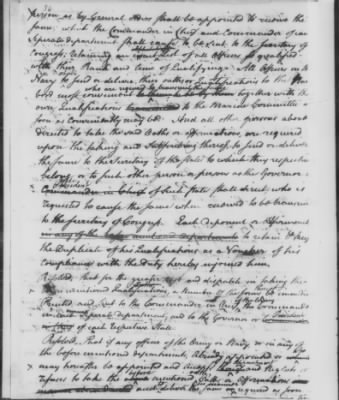 person as by General Orders shall be appointed to receive the
same, which the Commander in Chief and Commander of a
seperate department shall cause to be sent to the Secretary of
Congress, retaining an exact list of all Officers so qualified
with their Rank and time of Qualifying. All Officers in the
Navy to send or deliver their Oaths or Qualifications to the
who are required to transmit the same
together with their
own Qualifications to the Marine Committee as
soon as conveniently may be. And all other persons above
directed to take the said Oaths or affirmations, are required
upon the taking and subscribing thereof to send or deliver
the same to the Secretary of the State to which they respectively
belong, or to such other person or persons as the Governor or
President
Commander in Chief of such State shall direct, who is
requested to cause the same when received to be transmitted
to the Secretary of Congress. Each deponent or Affirmant
in any of the to retain the
Duplicate of his Qualification as a Voucher of his
compliance with the Duty hereby injoined him.
Resolved, That for the greater ease and dispatch in taking the
Qualifications, a Number of the forms be immediately
Printed and sent to the Commander in Chief, the Commander
in each seperate department, and to the Governor or President
of each respective State.
Resolved, That if any officer of the Army or Navy or in any of
the before mentioned departments, already appointed or
may hereafter be appointed and neglects or
refuses to take the mentioned Oaths or Affirmations
the same as required as soon